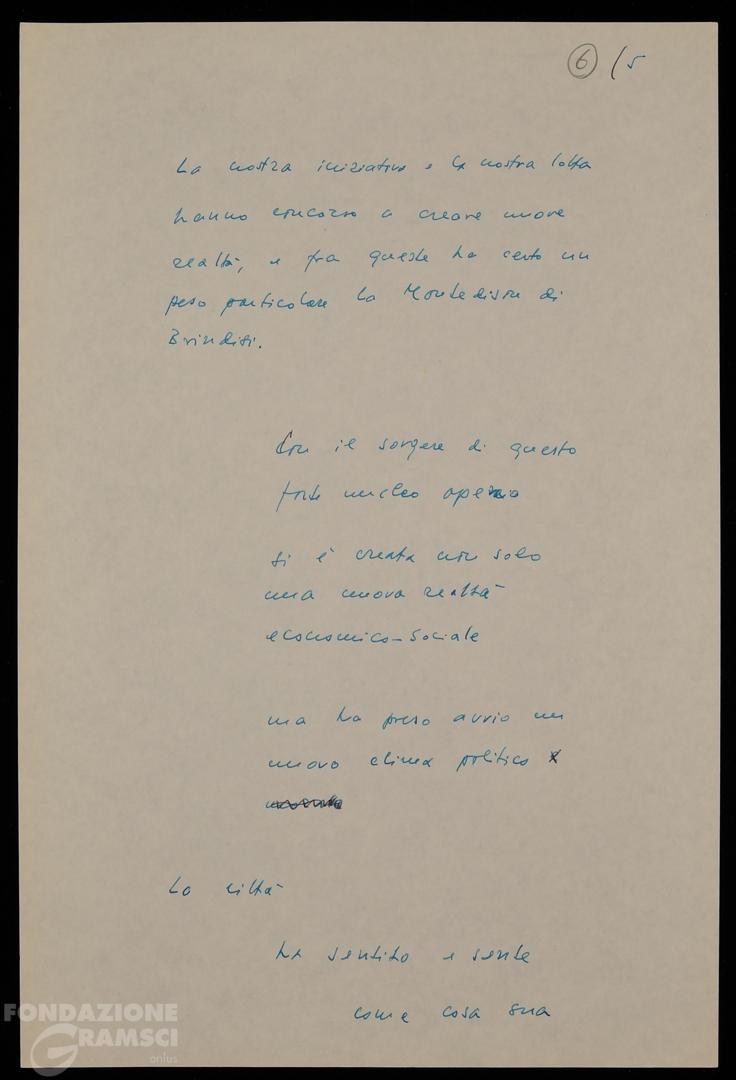 6 /5
La nostra iniziativa e la nostra lotta
hanno concorso a creare nuove
realtà, e fra queste ha certo un
peso particolare la Montedison di
Brindisi.
Con il sorgere di questo
forte nucleo operaio
si è creata non solo
una nuova realtà
economico-sociale
ma ha preso avvio un
nuovo clima politico x
La città
ha sentito e sente
come cosa sua
FONDAZIONE
GRAMSCI
onlus